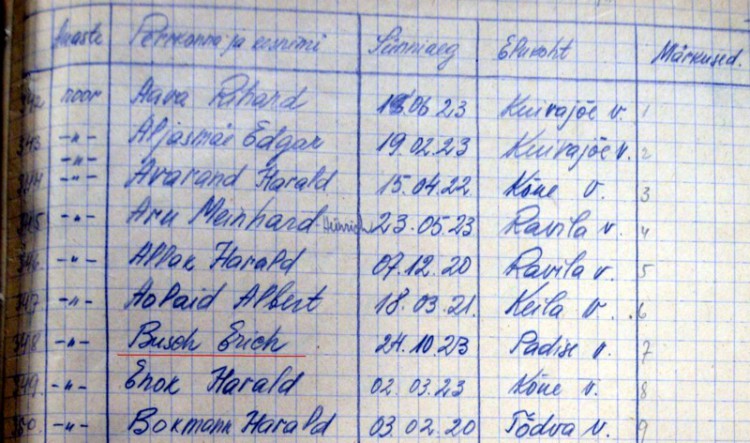 Aaste Perekonna ja eesnimi Sünniaeg Elukoht Märkused.
342 noor Aava Rihard 18.06 23 Kuivajõe v. 1
343 -"- Aljasmäe Edgar 19.02.23 Kuivajõe v. 2
-"-
344 -"- Avarand Harald 15.04.22 Kõue v. 3
345 -"- Aru Meinhard-Hinrich 23.05 23 Ravila v. 4
346 -"- Allak Harald 07.12.20 Ravila v. 5
347 -"- Aolaid Albert 18.03.21. Keila v. 6
348 -"- Busch Erich 24.10 23 Padise v. 7
349 -"- Enok Harald 02.03.23 Kõue v. 8
350 -"- Bokmann Harald 03.02.20 Tõdva v. 9